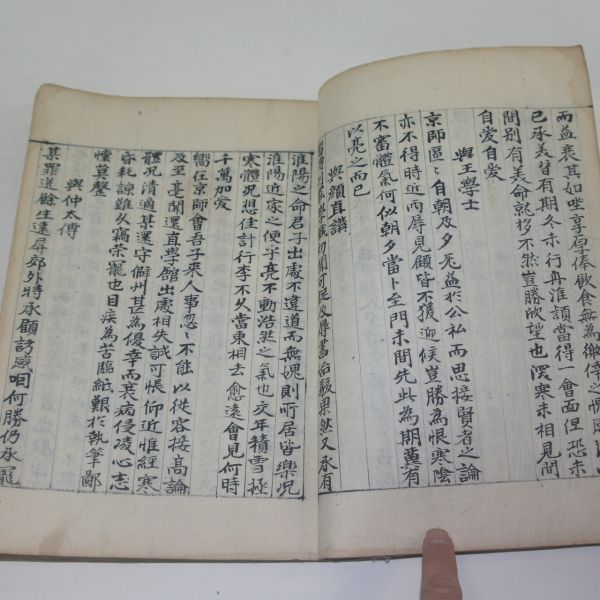 而益衰其如坐享厚俸飲食無為徼倖之慢
已承美替有期冬末行再淮頴當得一會面但恐未
間別有美命就移不然豈勝欣望也沍寒未相見間
自愛自愛
與王學士
京師區〻自朝及夕无益於公私而思接賢者之論
亦不得時近兩辱見顧皆不獲迎候豈勝為恨寒陰
不審體氣何似朝夕當卜至門未間先此為期冀有
以亮之而已
與顔直講
辱書始駭果然又承有
淮陽之命君子出處不違道而無媿則所居皆樂况
淮陽近家之便乎亮不動浩然之氣也交年積雪極
寒體况想佳計行李不久當東相去愈遠會見何時
千萬加愛
嚮在京師會吾子來人事忽〻不能以從容接髙論
及至亳聞還直學舘出處相失誠可悵仰近惟經寒
體况清適某還守僻州甚為優幸而衰病侵凌心志
昏耗諒難久竊榮寵也目疾為苦臨紙艱於執筆鄙
懷莫罄
與仲太傅
某罪逆餘生逺屏郊外時承顧訪感咽何勝仍承寵